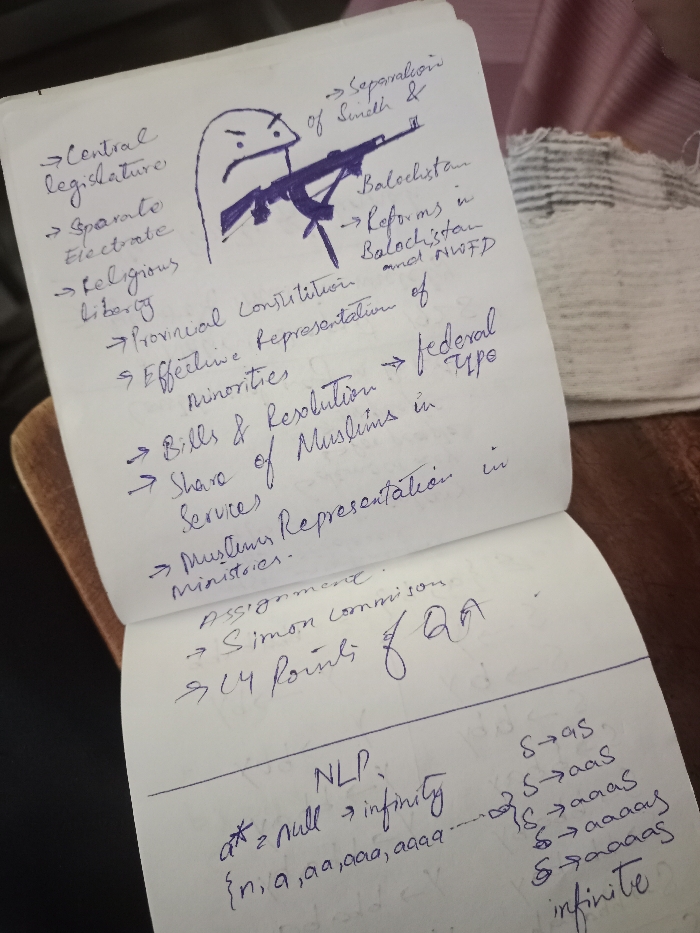 → Central
legislature
→ Sparate
Electrate
→ Religious
liberty
→ Separation
of Sindh &
Balochistan
→ Reforms in
Balochistan
and NWFD
→ Provincial Constitution
→ Effective Representation of
Minorities
→ Bills & Resolution → federal
type
→ Share of Muslims in
Services
→ Muslims Representation in
Ministries.
Assignment.
→ Simon commison
→ 14 Points of QA
NLP.
a* = null → infinity
{n, a, aa, aaa, aaaa ...... ∞}
S → aS
S → aaS
S → aaaS
S → aaaaS
S → aaaaS
infinite